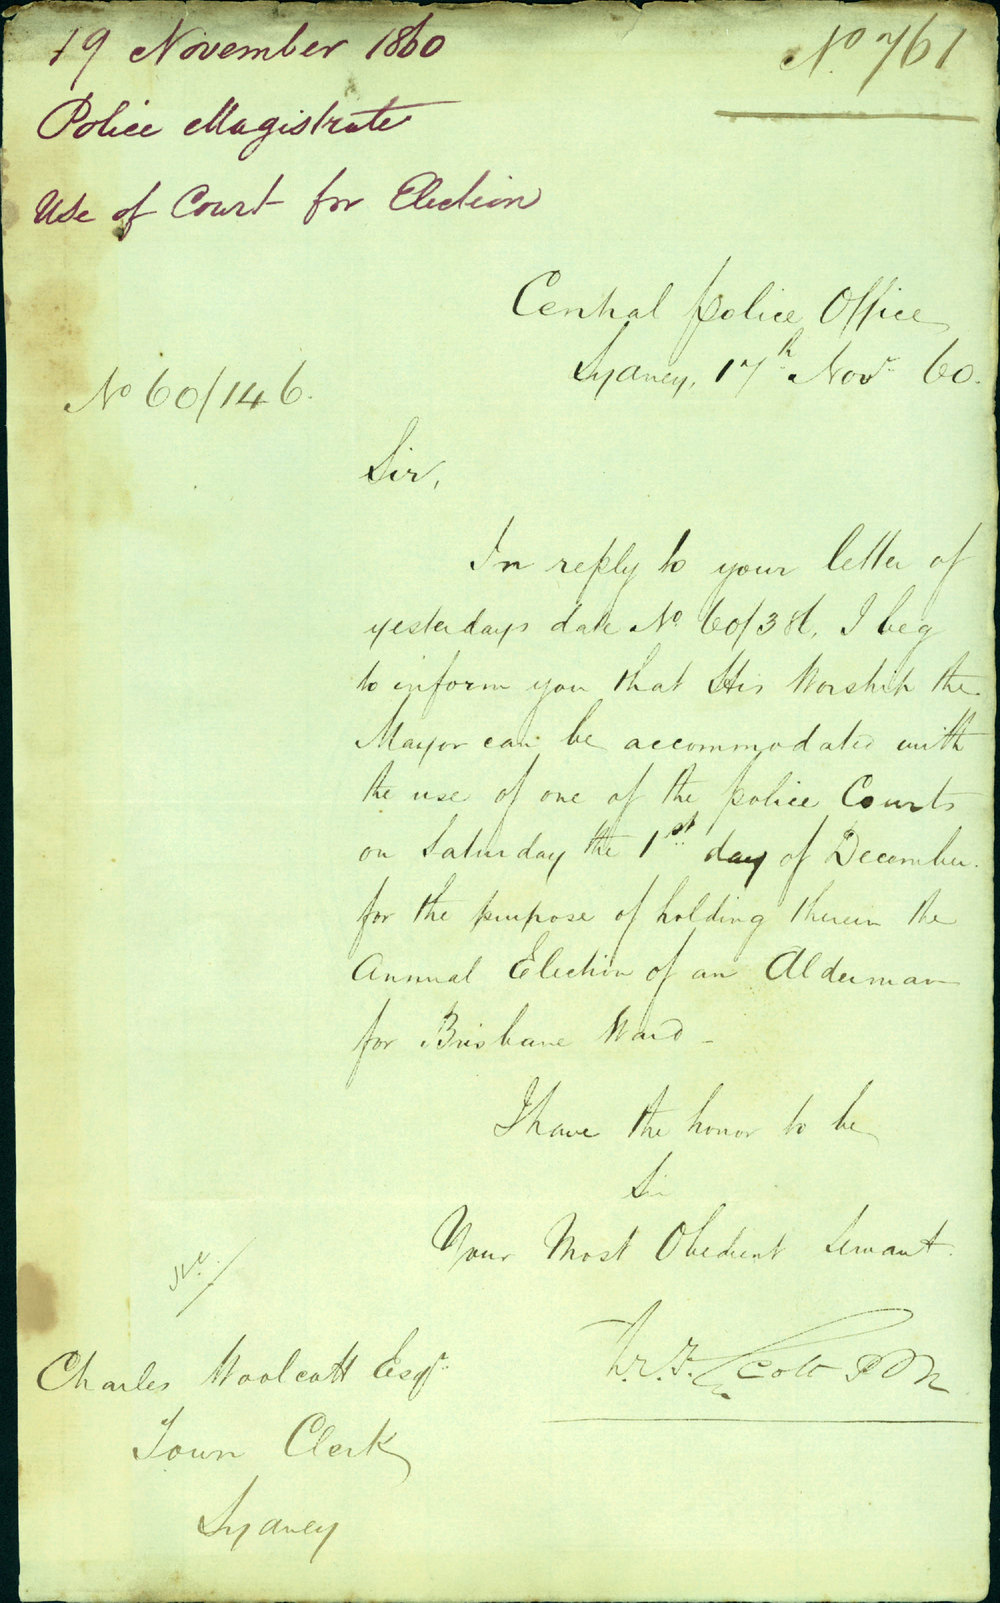 19 November 1860
No 761
Police Magistrate
Use of Court for Election
Central Police Office
Sydney, 17th Novr 60.
No 60/146.
Sir,
In reply to your letter of
yesterdays date No. 60/38, I beg
to inform you that His Worship the
Mayor can be accommodated with
the use of one of the police Courts
on Saturday the 1st day of December
for the purpose of holding therein the
Annual Election of an Alderman
for Brisbane Ward -
I have the honor to be
Sir
Your Most Obedient Servant.
Scott P M
Charles Woolcott Esqr.
Town Clerk
Sydney